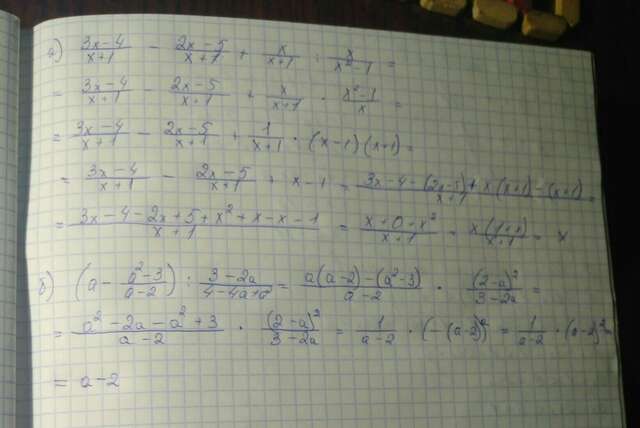 а) (3x-4)/(x+1) - (2x-5)/(x+1) + x/(x+1) : x/(x²-1) =
= (3x-4)/(x+1) - (2x-5)/(x+1) + x/(x+1) · (x²-1)/x =
= (3x-4)/(x+1) - (2x-5)/(x+1) + 1/(x+1) · (x-1)(x+1) =
= (3x-4)/(x+1) - (2x-5)/(x+1) + x-1 = (3x-4-(2x-5)+x(x+1)-(x+1))/(x+1) =
= (3x-4-2x+5+x²+x-x-1)/(x+1) = (x+0+x²)/(x+1) = x(1+x)/(x+1) = x
б) (a - (a²-3)/(a-2)) : (3-2a)/(4-4a+a²) = (a(a-2)-(a²-3))/(a-2) · (2-a)²/(3-2a) =
= (a²-2a-a²+3)/(a-2) · (2-a)²/(3-2a) = 1/(a-2) · (-(a-2))² = 1/(a-2) · (a-2)² =
= a-2